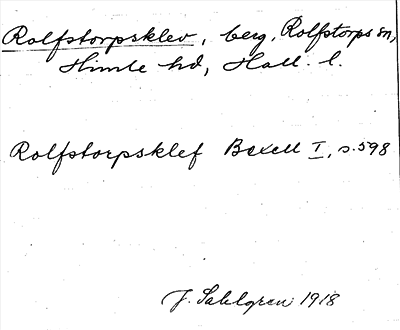 Rolfstorpsklev, berg, Rolfstorps sn,
Himle hd, Hall. l.
Rolfstorpsklef Bexell I, s. 598
J. Sahlgren 1918